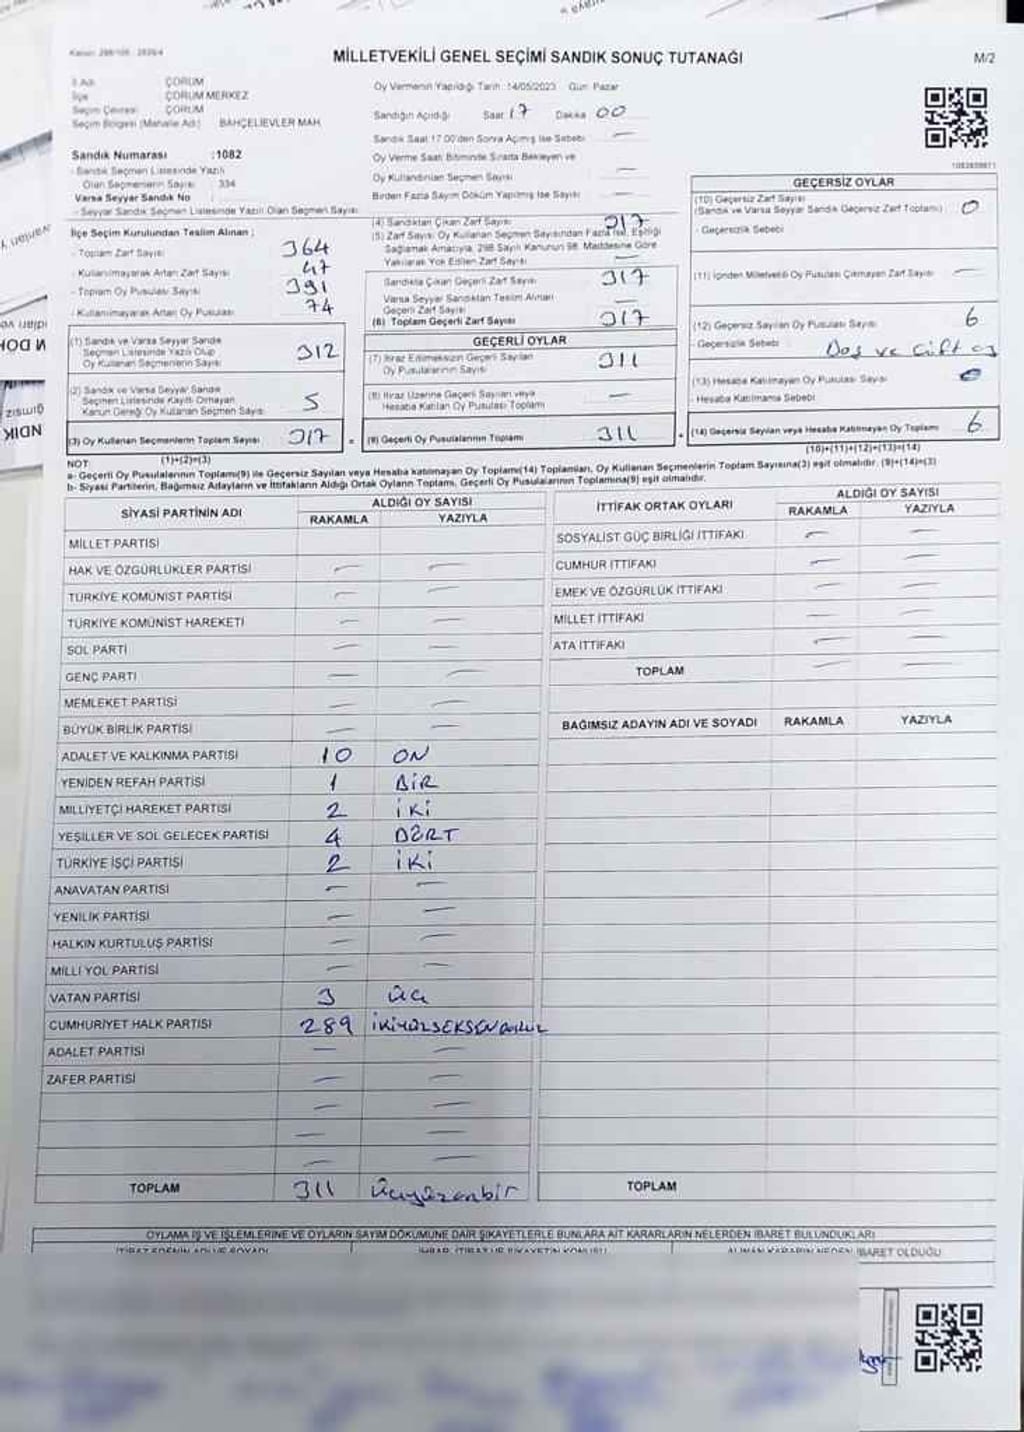 MİLLETVEKİLİ GENEL SEÇİMİ SANDIK SONUÇ TUTANAĞI
M/2
İl Adı ÇORUM
İlçe ÇORUM MERKEZ
Seçim Çevresi ÇORUM
Seçim Bölgesi (Mahalle Adı) BAHÇELİEVLER MAH.
Sandık Numarası :1082
- Sandık Seçmen Listesinde Yazılı
Olan Seçmenlerin Sayısı : 334
Varsa Seyyar Sandık No
- Seyyar Sandık Seçmen Listesinde Yazılı Olan Seçmen Sayısı
İlçe Seçim Kurulundan Teslim Alınan ;
- Toplam Zarf Sayısı 364
- Kullanılmayarak Artan Zarf Sayısı 47
- Toplam Oy Pusulası Sayısı 391
- Kullanılmayarak Artan Oy Pusulası 74
(1) Sandık ve Varsa Seyyar Sandık
Seçmen Listesinde Yazılı Olup
Oy Kullanan Seçmenlerin Sayısı 312
(2) Sandık ve Varsa Seyyar Sandık
Seçmen Listesinde Kayıtlı Olmayan
Kanun Gereği Oy Kullanan Seçmen Sayısı 5
(3) Oy Kullanan Seçmenlerin Toplam Sayısı 317 =
(1)+(2)=(3)
Oy Vermenin Yapıldığı Tarih :14/05/2023 Gün: Pazar
Sandığın Açıldığı Saat 17 Dakika 00
Sandık Saat 17.00'den Sonra Açılmış İse Sebebi —
Oy Verme Saati Bitiminde Sırada Bekleyen ve
Oy Kullandırılan Seçmen Sayısı —
Birden Fazla Sayım Döküm Yapılmış İse Sayısı —
(4) Sandıktan Çıkan Zarf Sayısı 317
(5) Zarf Sayısı Oy Kullanan Seçmen Sayısından Fazla İse, Eşitliği
Sağlamak Amacıyla, 298 Sayılı Kanunun 98. Maddesine Göre
Yakılarak Yok Edilen Zarf Sayısı —
Sandıkta Çıkan Geçerli Zarf Sayısı 317
Varsa Seyyar Sandıktan Teslim Alınan
Geçerli Zarf Sayısı —
(6) Toplam Geçerli Zarf Sayısı 317
GEÇERLİ OYLAR
(7) İtiraz Edilmeksizin Geçerli Sayılan
Oy Pusulalarının Sayısı 311
(8) İtiraz Üzerine Geçerli Sayılan veya
Hesaba Katılan Oy Pusulası Toplamı —
(9) Geçerli Oy Pusulalarının Toplamı 311 +
GEÇERSİZ OYLAR
(10) Geçersiz Zarf Sayısı
(Sandık ve Varsa Seyyar Sandık Geçersiz Zarf Toplamı) 0
- Geçersizlik Sebebi
(11) İçinden Milletvekili Oy Pusulası Çıkmayan Zarf Sayısı —
(12) Geçersiz Sayılan Oy Pusulası Sayısı 6
- Geçersizlik Sebebi Boş ve Çift oy
(13) Hesaba Katılmayan Oy Pusulası Sayısı 0
- Hesaba Katılmama Sebebi
(14) Geçersiz Sayılan veya Hesaba Katılmayan Oy Toplamı 6
(10)+(11)+(12)+(13)=(14)
NOT:
a- Geçerli Oy Pusulalarının Toplamı(9) ile Geçersiz Sayılan veya Hesaba katılmayan Oy Toplamı(14) Toplamları, Oy Kullanan Seçmenlerin Toplam Sayısına(3) eşit olmalıdır. (9)+(14)=(3)
b- Siyasi Partilerin, Bağımsız Adayların ve İttifakların Aldığı Ortak Oyların Toplamı, Geçerli Oy Pusulalarının Toplamına(9) eşit olmalıdır.
SİYASİ PARTİNİN ADI ALDIĞI OY SAYISI
RAKAMLA YAZIYLA
MİLLET PARTİSİ
HAK VE ÖZGÜRLÜKLER PARTİSİ — —
TÜRKİYE KOMÜNİST PARTİSİ — —
TÜRKİYE KOMÜNİST HAREKETİ — —
SOL PARTİ — —
GENÇ PARTİ — —
MEMLEKET PARTİSİ — —
BÜYÜK BİRLİK PARTİSİ — —
ADALET VE KALKINMA PARTİSİ 10 ON
YENİDEN REFAH PARTİSİ 1 BİR
MİLLİYETÇİ HAREKET PARTİSİ 2 İKİ
YEŞİLLER VE SOL GELECEK PARTİSİ 4 DÖRT
TÜRKİYE İŞÇİ PARTİSİ 2 İKİ
ANAVATAN PARTİSİ — —
YENİLİK PARTİSİ — —
HALKIN KURTULUŞ PARTİSİ — —
MİLLİ YOL PARTİSİ — —
VATAN PARTİSİ 3 Üç
CUMHURİYET HALK PARTİSİ 289 İKİYÜZSEKSENDOKUZ
ADALET PARTİSİ — —
ZAFER PARTİSİ — —
— —
— —
— —
TOPLAM 311 Üçyüzonbir
İTTİFAK ORTAK OYLARI ALDIĞI OY SAYISI
RAKAMLA YAZIYLA
SOSYALİST GÜÇ BİRLİĞİ İTTİFAKI — —
CUMHUR İTTİFAKI — —
EMEK VE ÖZGÜRLÜK İTTİFAKI — —
MİLLET İTTİFAKI — —
ATA İTTİFAKI — —
TOPLAM — —
BAĞIMSIZ ADAYIN ADI VE SOYADI RAKAMLA YAZIYLA
TOPLAM
OYLAMA İŞ VE İŞLEMLERİNE VE OYLARIN SAYIM DÖKÜMÜNE DAİR ŞİKAYETLERLE BUNLARA AİT KARARLARIN NELERDEN İBARET BULUNDUKLARI
İTİRAZ EDENİN ADI VE SOYADI İHBAR, İTİRAZ VE ŞİKAYETİN KONUSU ALINAN KARARIN NEDEN İBARET OLDUĞU